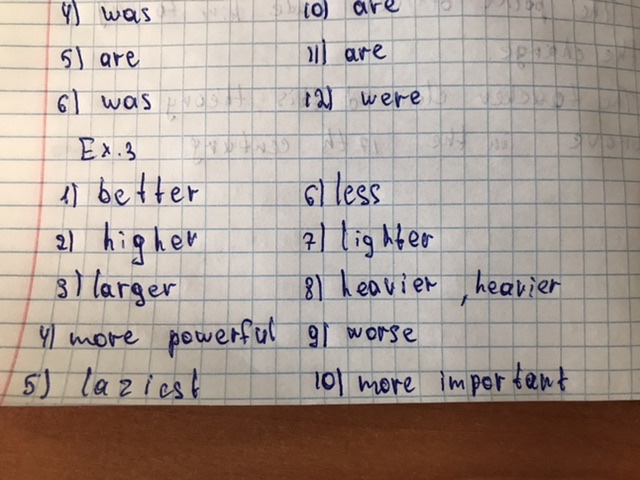 4) was 10) are
5) are 11) are
6) was 12) were
Ex.3
1) better 6) less
2) higher 7) lighter
3) larger 8) heavier, heavier
4) more powerful 9) worse
5) laziest 10) more important